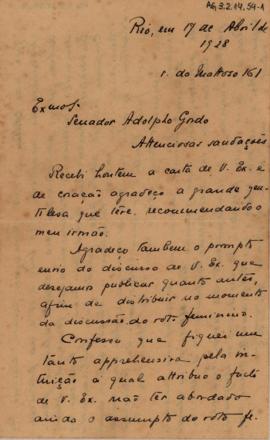 AG.3.2.14.54-1
Rio, em 17 de Abril de
1928
r. do Mattoso 161
Exmo Sr.
Senador Adolpho Gordo
Attenciosas saudações
Recebi hontem a carta de V. Ex. e
de coração agradeço a grande gen-
tilesa que teve, recommendando o
meu irmão.
Agradeço tambem o prompto
envio do discurso de V. Ex. que
desejamos publicar quanto antes,
afim de distribuir no momento
da discussão do voto feminino.
Confesso que fiquei um
tanto apprehensiva pela in-
tuição á qual attribuo o facto
de V. Ex. não ter abordado
ainda o assumpto do voto fe-